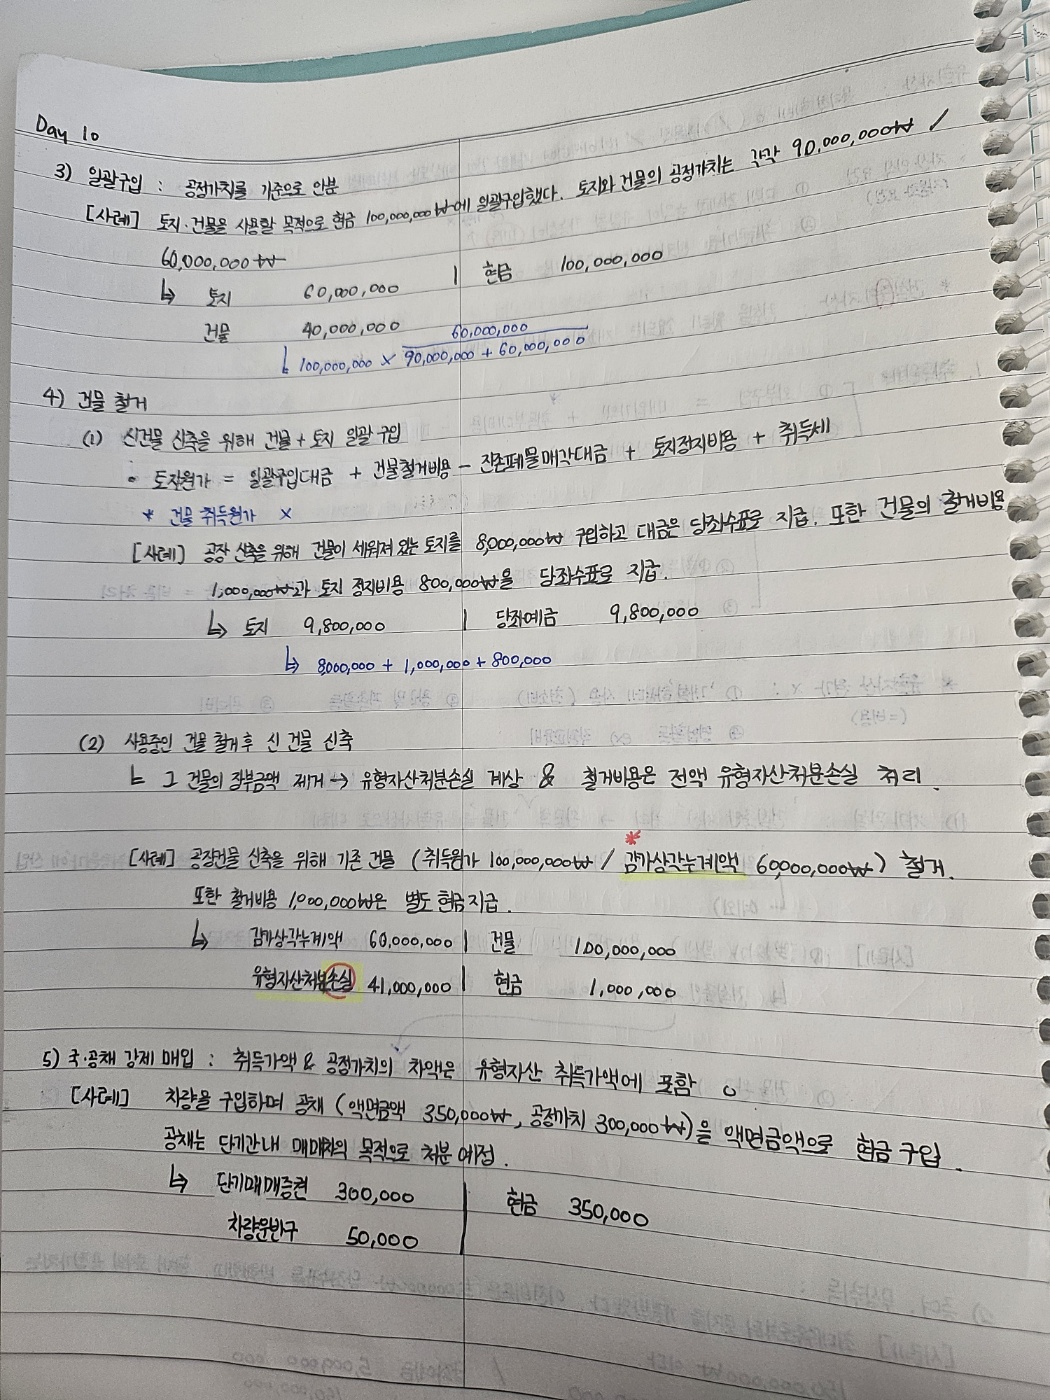 Day 10
3) 일괄구입 : 공정가치를 기준으로 안분
[사례] 토지·건물을 사용할 목적으로 현금 100,000,000₩에 일괄구입했다. 토지와 건물의 공정가치는 각각 90,000,000₩ /
60,000,000₩
↳ 토지 60,000,000 | 현금 100,000,000
건물 40,000,000
↳ 100,000,000 × 60,000,000 / 90,000,000 + 60,000,000
4) 건물 철거
(1) 신건물 신축을 위해 건물 + 토지 일괄 구입
• 토지원가 = 일괄구입대금 + 건물철거비용 - 잔존폐물매각대금 + 토지정지비용 + 취득세
* 건물 취득원가 ×
[사례] 공장 신축을 위해 건물이 세워져 있는 토지를 8,000,000₩ 구입하고 대금은 당좌수표로 지급. 또한 건물의 철거비용
1,000,000₩과 토지 정지비용 800,000₩을 당좌수표로 지급.
↳ 토지 9,800,000 | 당좌예금 9,800,000
↳ 8,000,000 + 1,000,000 + 800,000
(2) 사용중인 건물 철거후 신 건물 신축
ㄴ 그 건물의 장부금액 제거 → 유형자산처분손실 계상 & 철거비용은 전액 유형자산처분손실 처리.
[사례] 공장건물 신축을 위해 기존 건물 (취득원가 100,000,000₩ / 감가상각누계액 60,000,000₩) 철거.
또한 철거비용 1,000,000₩은 별도 현금지급.
↳ 감가상각누계액 60,000,000 | 건물 100,000,000
유형자산처분손실 41,000,000 | 현금 1,000,000
5) 국·공채 강제 매입 : 취득가액 & 공정가치의 차액은 유형자산 취득가액에 포함 o
[사례] 차량을 구입하며 공채 (액면금액 350,000₩, 공정가치 300,000₩)을 액면금액으로 현금 구입.
공채는 단기간내 매매차익 목적으로 처분 예정.
↳ 단기매매증권 300,000 | 현금 350,000
차량운반구 50,000